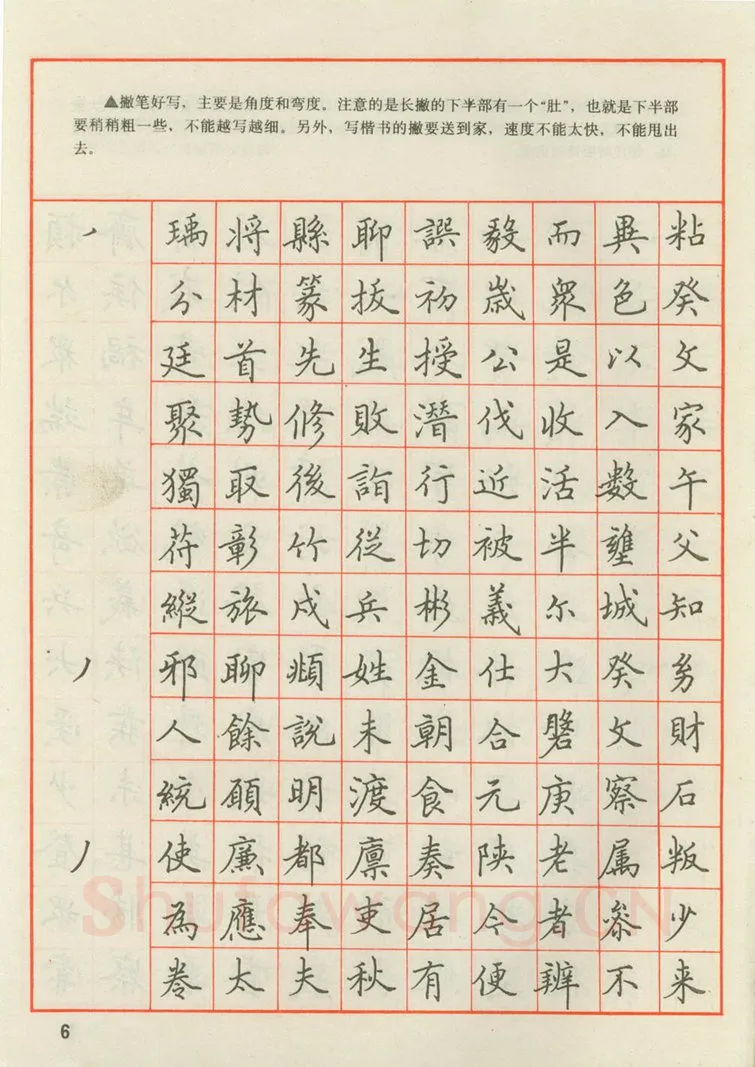 ▲撇笔好写，主要是角度和弯度。注意的是长撇的下半部有一个“肚”，也就是下半部
要稍稍粗一些，不能越写越细。另外，写楷书的撇要送到家，速度不能太快，不能甩出
去。
瑀将縣聊譔毅而異粘
分材篆拔初歲眾色癸
廷首先生授公是以文
聚勢修敗潛伐收入家
獨取後詣行近活数午
苻彰竹從切被半壅父
縱旅戍兵彬義尔城知
邪聊頫姓金仕大癸
人餘說未朝合磐文財
統願明渡食元庚察石
使廉都廪奏陝老属叛
為應奉吏居令者叅少
卷太夫秋有便辨不来
Shufawang.CN
6